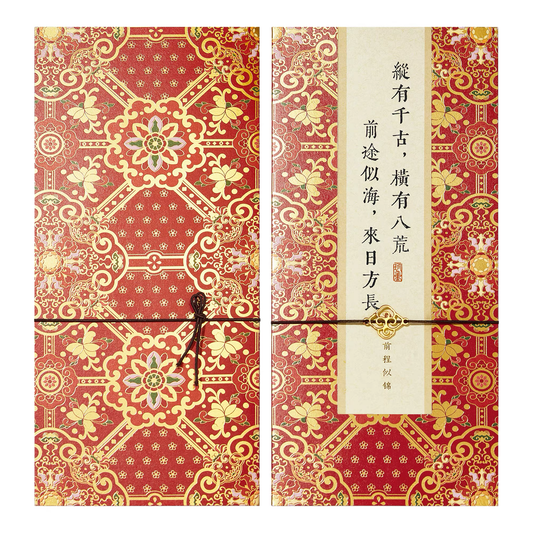 縱有千古，橫有八荒
前途似海，來日方長
前程似錦